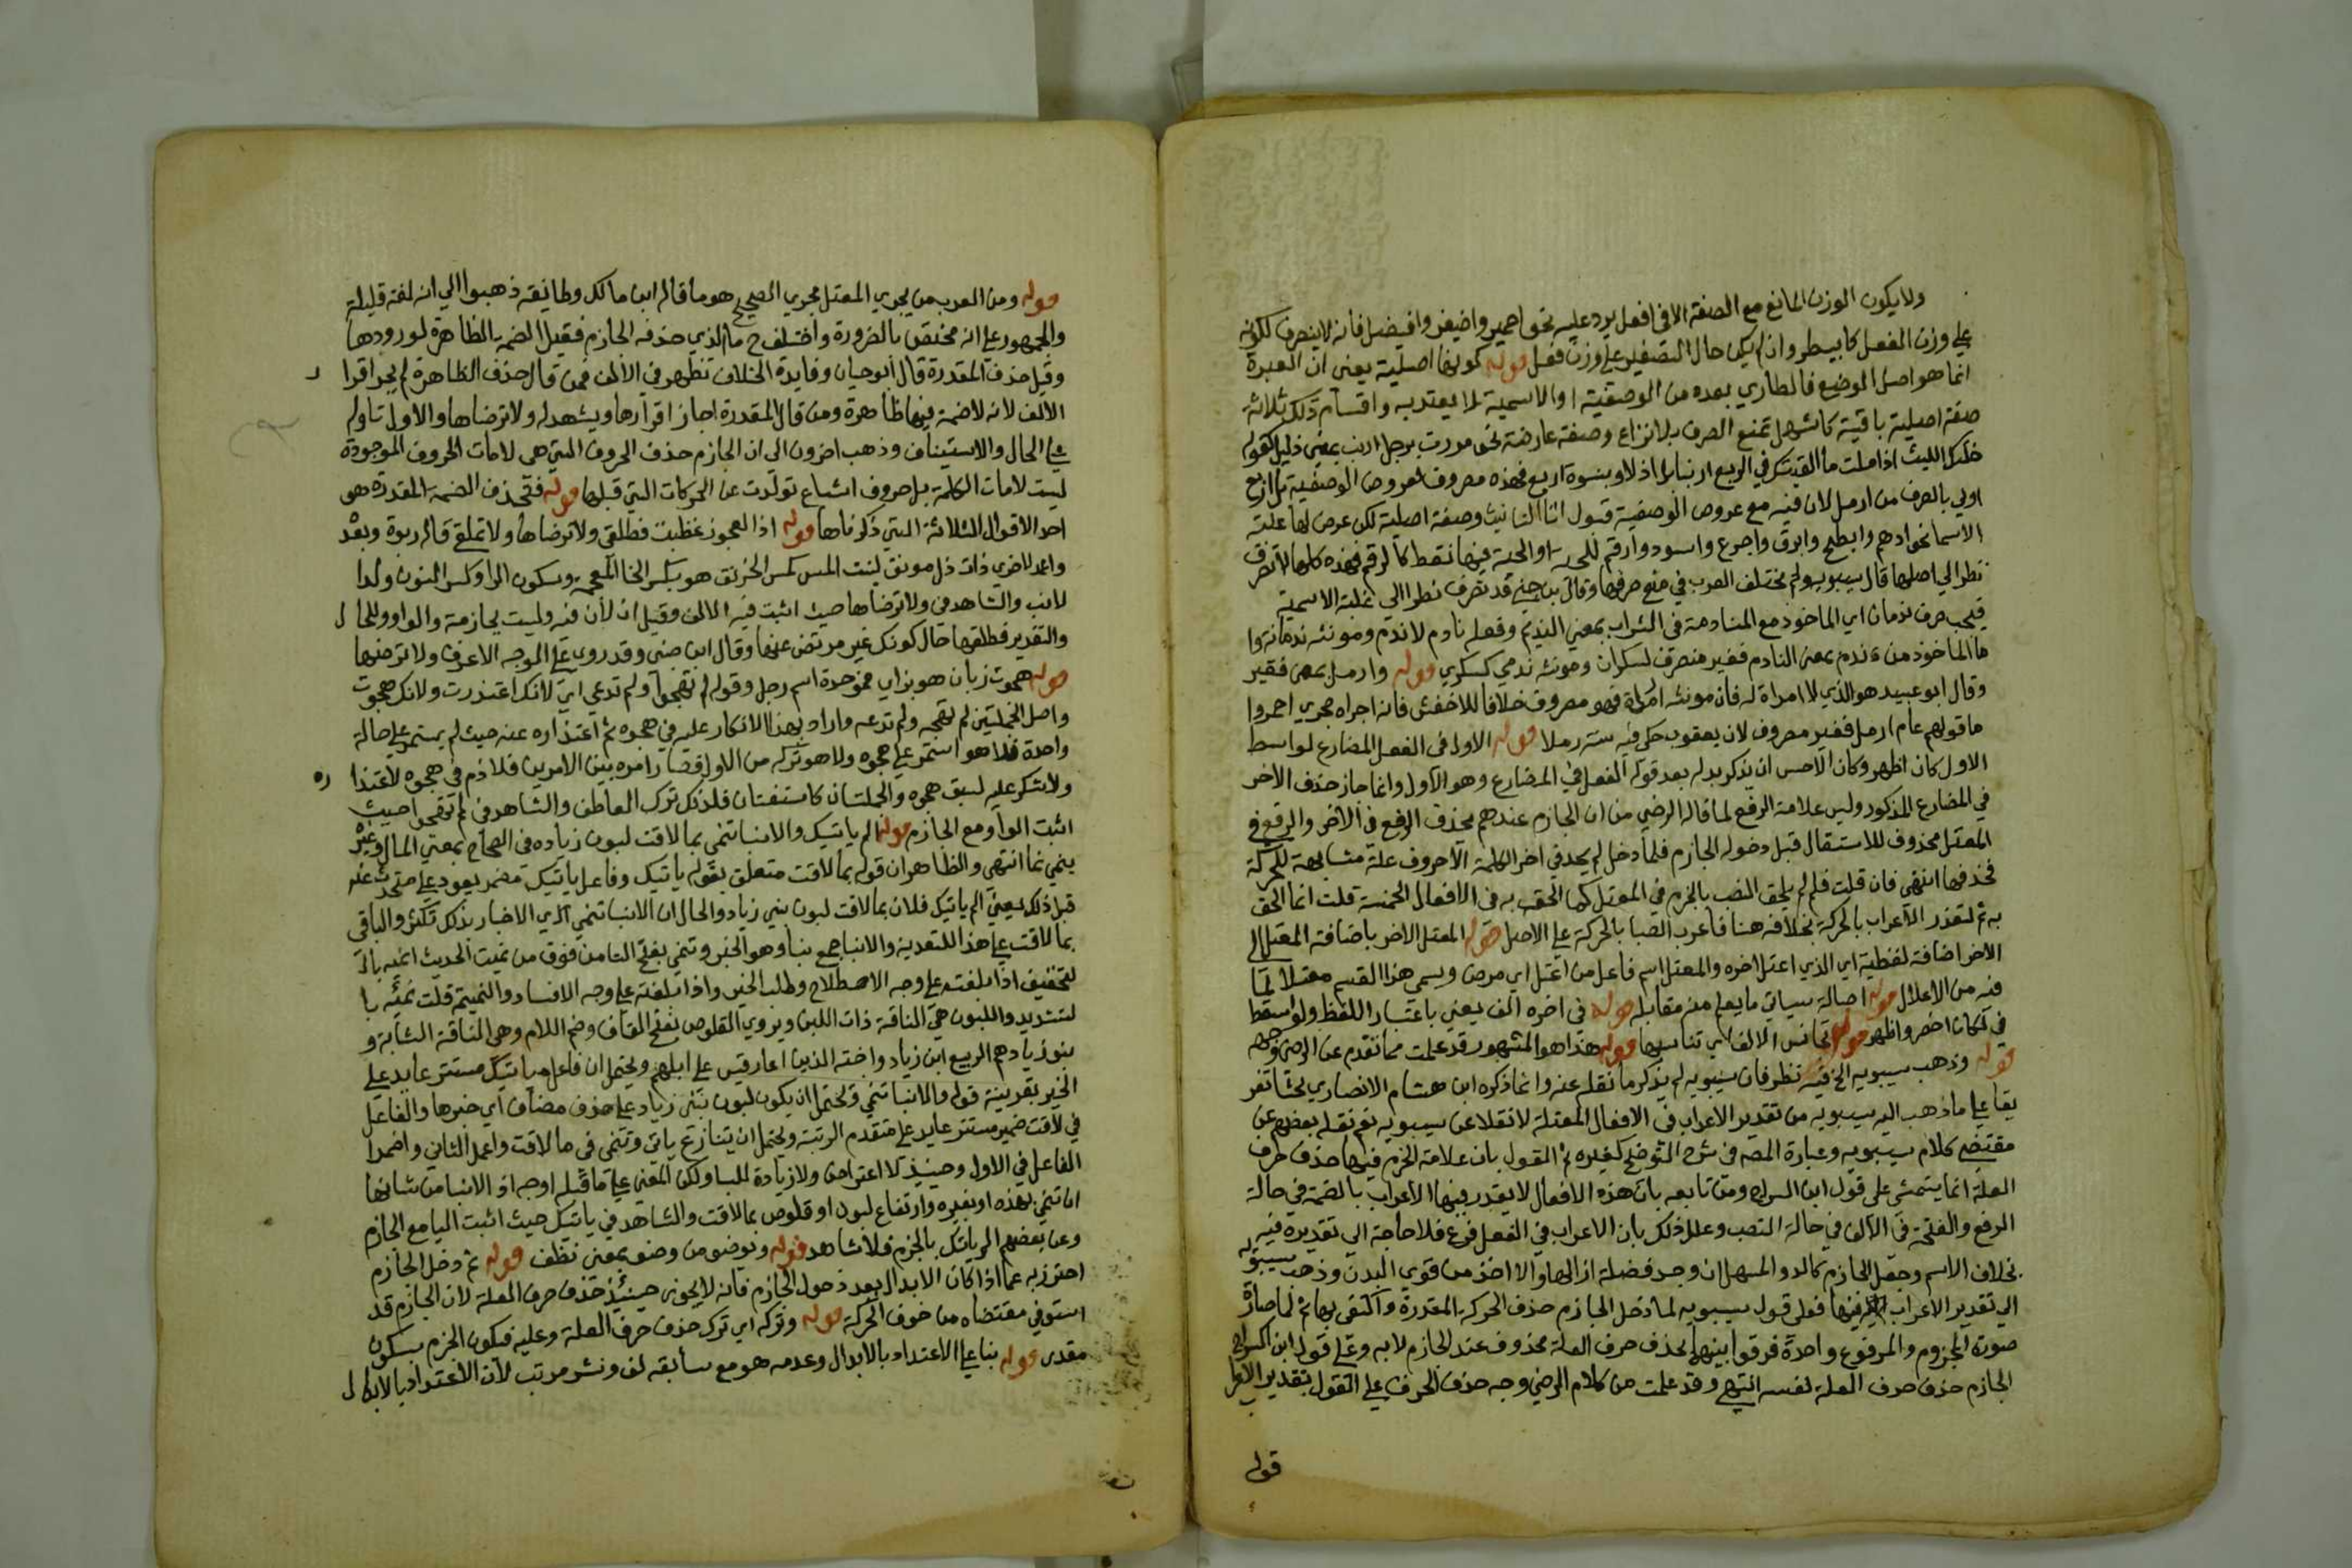 ولا يكون الوزن المانع مع الصفة الا في افعل يرد عليه نحو احيمر وافيضل فانه لا ينصرف لكونه
على وزن الفعل كابيطر وان لم يكن حال التصغير على وزن فعل قوله كونها اصلية يعني ان العبرة
انما هو اصل الوضع فالطاري بعده من الوصفية او الاسمية لا يعتد به واقسام ذلك ثلاثة
صفة اصلية باقية كاشهل تمنع الصرف بلا نزاع وصفة عارضة نحو مررت برجل ارنب بمعنى ذليل كقوله
اذلاء وبنسوة اربع فهذه مصروف لعروض الوصفية بل اربع
اولى بالصرف من ارمل لان فيه مع عروض الوصفية قبول التا التانيث وصفة اصلية لكن عرض لها غلبة
الاسما نحو ادهم وابطح وابرق واجرع واسود وارقم للحية او الحية فيها نقط كالرقم فهذه كلها لا تصرف
نظرا الى اصلها قال سيبويه ولم تختلف العرب في منع صرفها وقال بن جني قد تصرف نظرا الى غلبة الاسمية
فيجب صرف ندمان اي الماخوذ مع المنادمة في الشراب بمعنى النديم وفعله نادم لا ندم ومونثه ندمانة وا
ما الماخوذ من ندم بمعنى النادم فغير منصرف لسكران ومونثه ندمى كسكرى قوله وارمل بمعنى فقير
وقال ابو عبيد هو الذي لا امراة له فان مونثه ارملة فهو مصروف خلافا للاخفش فانه اجراه مجرى احمر وا
ما قولهم عام ارمل فغير مصروف لان يعقوب حكى فيه سنة رملا قوله الاول في الفعل المضارع لو اسقط
الاول كان اظهر وكان الاحسن ان يذكر بدله بعد قوله الفعل في المضارع وهو الاول وانما جاز حذف الاخر
في المضارع المذكور وليس علامة الرفع لما قاله الرضي من ان الجازم عندهم يحذف الرفع في الاخر والرفع في
المعتل محذوف للاستثقال قبل دخول الجازم فلما دخل لم يجد في اخر الكلمة الا حروف علة مشابهة للحركة
فحذفها انتهى فان قلت فلم لم يلحق النصب بالجزم في المعتل كما الحق به في الافعال الخمسة قلت انما الحق
به ثم لتعذر الاعراب بالحركة بخلافه هنا فاعرب النصب بالحركة على الاصل قوله المعتل الاخر باضافة المعتل الى
الاخر اضافة لفظية اي الذي اعتل اخره والمعتل اسم فاعل من اعتل اي مرض ويسمى هذا القسم معتلا لما
فيه من الاعلال قوله اصالة سياتي ما يعلم منه مقابله قوله في اخره الف يعني باعتبار اللفظ ولو اسقط
في لكان اخصر واظهر قوله تجانس الالف اي تناسبها قوله هذا هو المشهور قد علمت مما تقدم عن الرضي وجهه
قوله وذهب سيبويه الخ فيه نظر فان سيبويه لم يذكر ما نقله عنه وانما ذكره ابن هشام الانصاري بحثا تفر
يعا على ما ذهب اليه سيبويه من تقدير الاعراب في الافعال المعتلة لا نقلا عن سيبويه نعم نقله بعضهم عن
مقتضى كلام سيبويه وعبارة المصه في شرح التوضيح كغيره ثم القول بان علامة الجزم فيها حذف حرف
العلة انما يتمشى على قول ابن السراج ومن تابعه بان هذه الافعال لا يقدر فيها الاعراب بالضمة في حالة
الرفع والفتحة في الالف في حالة النصب وعلل ذلك بان الاعراب في الفعل فرع فلا حاجة الى تقديره فيه
بخلاف الاسم وجعل الجازم كالدواء المسهل ان وجد فضلة ازالها والا اخذ من قوي البدن وذهب سيبويه
الى تقدير الاعراب فيها فعلى قول سيبويه لما دخل الجازم حذف الحركة المقدرة واكتفى بها ثم لما صارة
صورة المجزوم والمرفوع واحدة فرقوا بينهما بحذف حرف العلة فحذف عند الجازم لا به وعلى قول ابن السراج
الجازم حذف حرف العلة نفسه انتهى وقد علمت من كلام الرضي وجه حذف الحرف على القول بتقدير الاعرا
قوله
قوله ومن العرب من يجري المعتل مجرى الصحيح هو ما قاله ابن مالك وطائفة ذهبوا الى انه لغة قليلة
والجمهور على انه مختص بالضرورة واختلف ح ما الذي حذفه الجازم فقيل الضمة الظاهرة لورودها
وقيل حذف المقدرة قال ابو حيان وفايدة الخلاف تظهر في الالف فمن قال حذف الظاهرة لم يجز اقرا ر
الالف لانه لا ضمة فيها ظاهرة ومن قال المقدرة اجاز اقرارها ويشهد له ولا ترضاها والاول تاوله
على الحال والاستيناف وذهب اخرون الى ان الجازم حذف الحروف التي هي لامات الحروف الموجودة
ليست لامات الكلمة بل حروف اشباع تولدت عن الحركات التي قبلها قوله فتحذف الضمة المقدرة هو
احد الاقوال الثلاثة التي ذكرناها قوله اذا العجوز غضبت فطلق ولا ترضاها ولا تملق قاله روبة وبعده
واعمد لاخرى ذات دل مونق لينت المس كمس الخرنق هو بكسر الخا المعجمة وسكون الرا وكسر النون ولد ا
لارنب والشاهد في ولا ترضاها حيث اثبت فيه الالف وقيل ان لا فيه وليست بجازمة والواو للحا ل
والتقدير فطلقها حال كونك غير مرتض عنها وقال ابن جني وقد روي على الوجه الاعرف ولا ترضها
قوله هجوت زبان هو بزاي فموحدة اسم رجل وقوله لم تهجوا ولم تدعي اي لانك اعتذرت ولانك هجوت
واصل الجملتين لم تهجه ولم تدعه واراد بهذا الانكار عليه في هجوه ثم اعتذاره عنه حيث لم يستمر على حالة
واحدة فلا هو استمر على هجوه ولا هو تركه من الاول فصار امره بين الامرين فلا ذم في هجوه لاعتذا ره
ولا شكر عليه لسبق هجوه والجملتان كاشفتان فلذلك ترك العاطف والشاهد في لم تهجوا حيث
اثبت الواو مع الجازم قوله الم ياتيك والانبا تنمي بما لاقت لبون زياده في الصحاح بمعنى المال وغيره
ينمي نما انتهى والظاهر ان قوله بما لاقت متعلق بقوله ياتيك وفاعل ياتيك مضمر يعود على متحدث عنه
قبل ذلك يعني الم ياتيك فلان بما لاقت لبون بني زياد والحال ان الانبا تنمي اي الاخبار بذلك تكثر والباقي
بما لاقت على هذا للتعدية والانبا جمع نبا وهو الخبر وتنمي بفتح التا من فوق من نميت الحديث انميه بالـ
لتخفيف اذا بلغته على وجه الاصطلاح وطلب الخير واذا بلغته على وجه الافساد والنميمة قلت نميته با
لتشديد واللبون هي الناقة ذات اللبن ويروي القلوص بفتح القاف وضم اللام وهي الناقة الشابة و
بنو زياد هم الربيع ابن زياد واخته الذين اغار قيس على ابلهم ويحتمل ان فاعل ياتيك مستتر عايد على
الخبر بقرينة قوله والانبا تنمي ويحتمل ان يكون لبون بني زياد على حذف مضاف اي خبرها والفاعل
في لاقت ضمير مستتر عايد على متقدم الرتبة ويحتمل ان يتنازع ياتي وتنمي في ما لاقت واعمل الثاني واضمر ا
الفاعل في الاول وحينيذ لا اعتراض ولا زيادة للبا ولكن المعنى على ما قبله اوجه اذ الانبا من شانها
ان تنمي بهذه او بغيره وارتفاع لبون او قلوص بما لاقت والشاهد في ياتيك حيث اثبت اليا مع الجازم
وعن بعضهم الم ياتك بالجزم فلا شاهد قوله ويوضو من وضو بمعنى نظف قوله ثم دخل الجازم
احترز به عما اذا كان الابدال بعد دخول الجازم فانه لا يجوز حينيذ حذف حرف العلة لان الجازم قد
استوفي مقتضاه من حذف الحركة قوله وتركه اي ترك حذف حرف العلة وعليه فيكون الجزم بسكون
مقدر قوله بنا على الاعتداد بالابدال وعدمه هو مع سابقه لف ونشر مرتب لان الاعتداد بالابدا ل